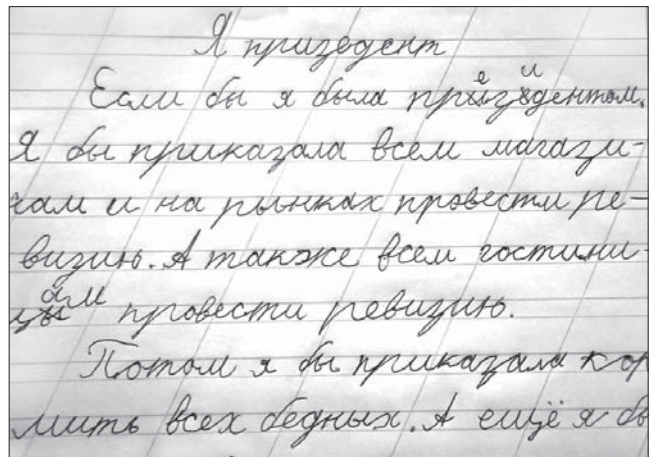 Я призедент
Если бы я была президентом.
Я бы приказала всем магази-
нам и на рынках провести ре-
визию. А также всем гостини-
цам провести ревизию.
Потом я бы приказала кор
мить всех бедных. А ещё я бы